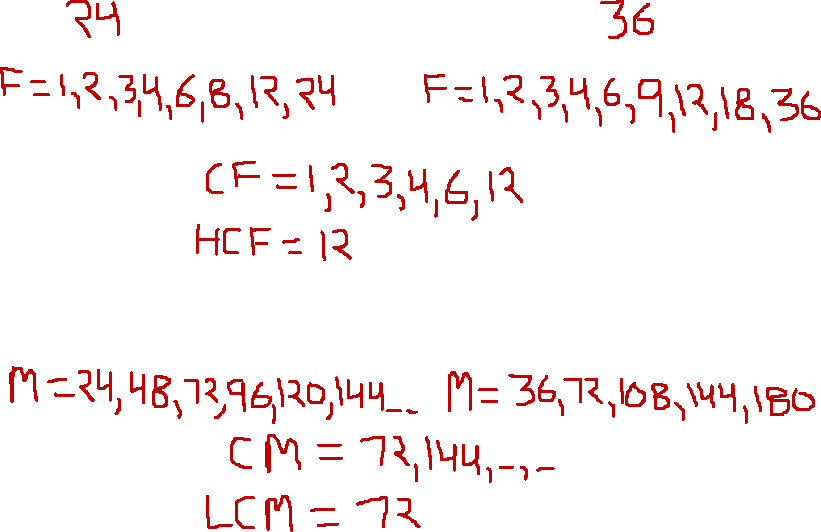 24 36
F=1,2,3,4,6,8,12,24 F=1,2,3,4,6,9,12,18,36
CF=1,2,3,4,6,12
HCF=12
M=24,48,72,96,120,144... M=36,72,108,144,180
CM=72,144,-,-
LCM=72